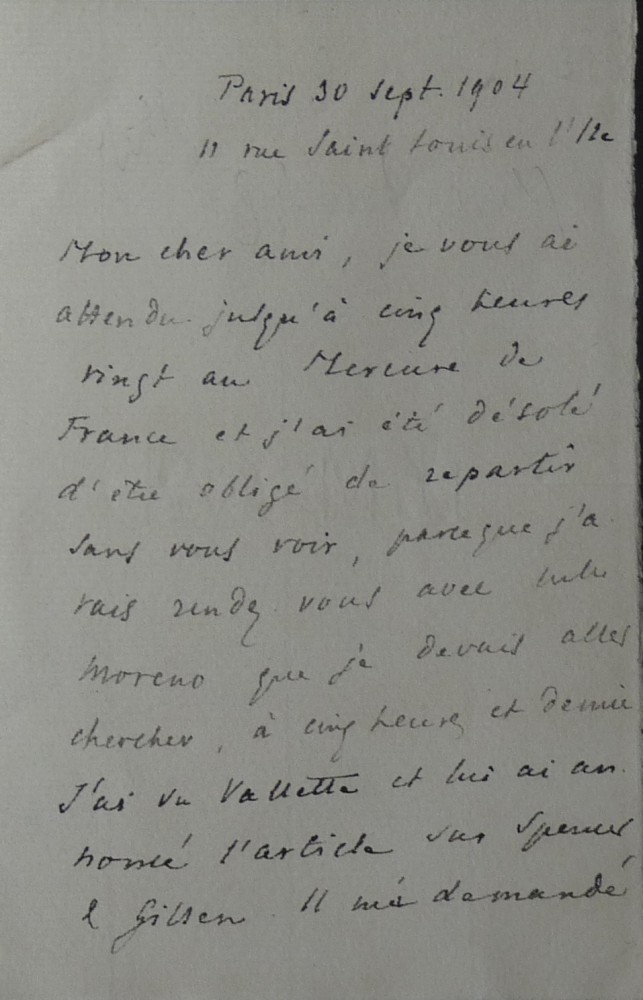 Paris 30 sept. 1904
11 rue Saint Louis en l'Ile
Mon cher ami, je vous ai
attendu jusqu'à cinq heures
vingt au Mercure de
France et j'ai été désolé
d'être obligé de repartir
sans vous voir, parceque j'a
vais rendez vous avec
Moreno que je devais aller
chercher, à cinq heures et demie
J'ai vu Vallette et lui ai an
noncé l'article sur Spencer
& Gillen. Il m'a demandé